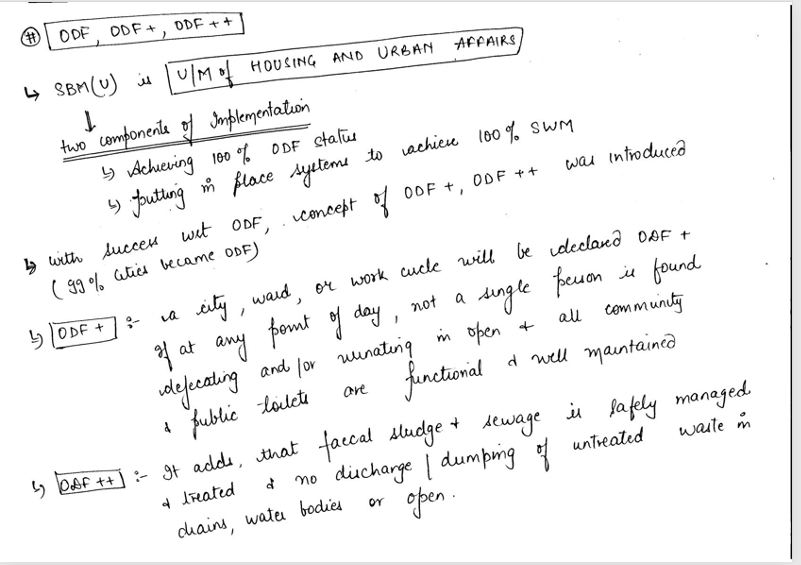 # ODF, ODF+, ODF++
↳ SBM(U) is U/M of HOUSING AND URBAN AFFAIRS
↓
two components of Implementation
↳ Achieving 100% ODF status
↳ putting in place systems to achieve 100% SWM
↳ with success wrt ODF, concept of ODF+, ODF++ was introduced
(99% cities became ODF)
↳ ODF+ :- a city, ward, or work circle will be declared ODF+
if at any point of day, not a single person is found
defecating and/or urinating in open & all community
& public toilets are functional & well maintained
↳ ODF++ :- It adds, that faecal sludge & sewage is safely managed
& treated & no discharge / dumping of untreated waste in
drains, water bodies or open.